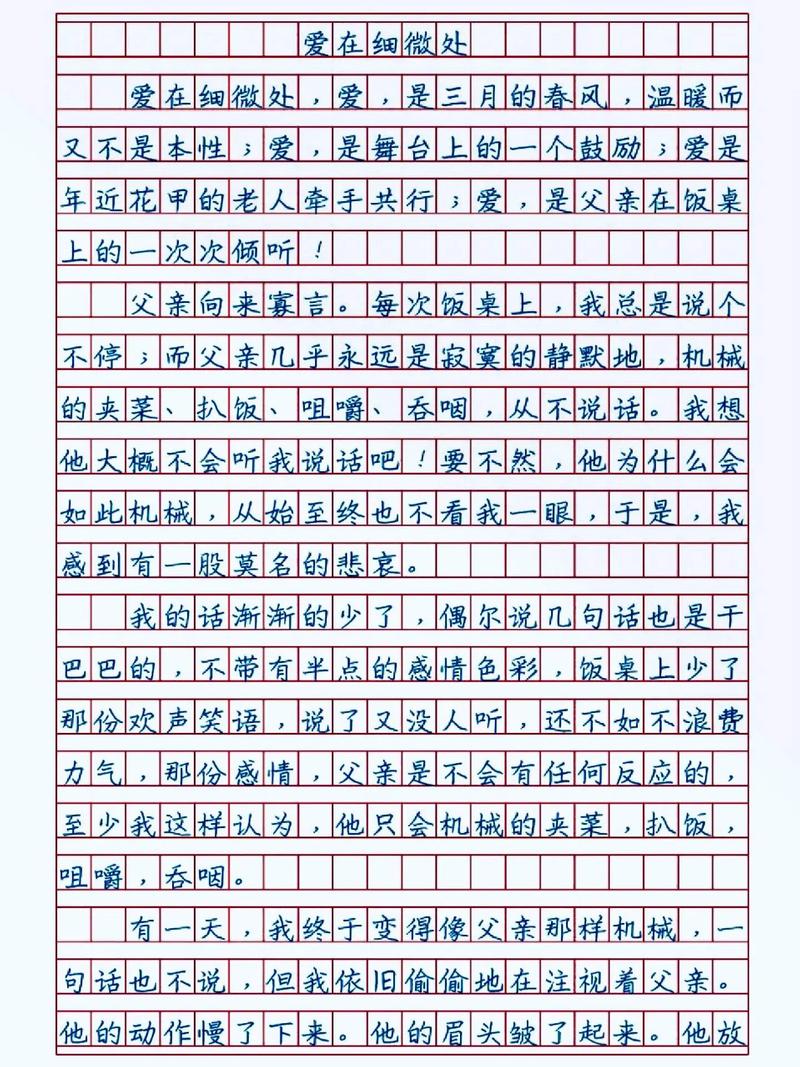 爱在细微处
爱在细微处，爱，是三月的春风，温暖而
又不是本性；爱，是舞台上的一个鼓励；爱是
年近花甲的老人牵手共行；爱，是父亲在饭桌
上的一次次倾听！
父亲向来寡言。每次饭桌上，我总是说个
不停；而父亲几乎永远是寂寞的静默地，机械
的夹菜、扒饭、咀嚼、吞咽，从不说话。我想
他大概不会听我说话吧！要不然，他为什么会
如此机械，从始至终也不看我一眼，于是，我
感到有一股莫名的悲哀。
我的话渐渐的少了，偶尔说几句话也是干
巴巴的，不带有半点的感情色彩，饭桌上少了
那份欢声笑语，说了又没人听，还不如不浪费
力气，那份感情，父亲是不会有任何反应的，
至少我这样认为，他只会机械的夹菜，扒饭，
咀嚼，吞咽。
有一天，我终于变得像父亲那样机械，一
句话也不说，但我依旧偷偷地在注视着父亲。
他的动作慢了下来。他的眉头皱了起来。他放